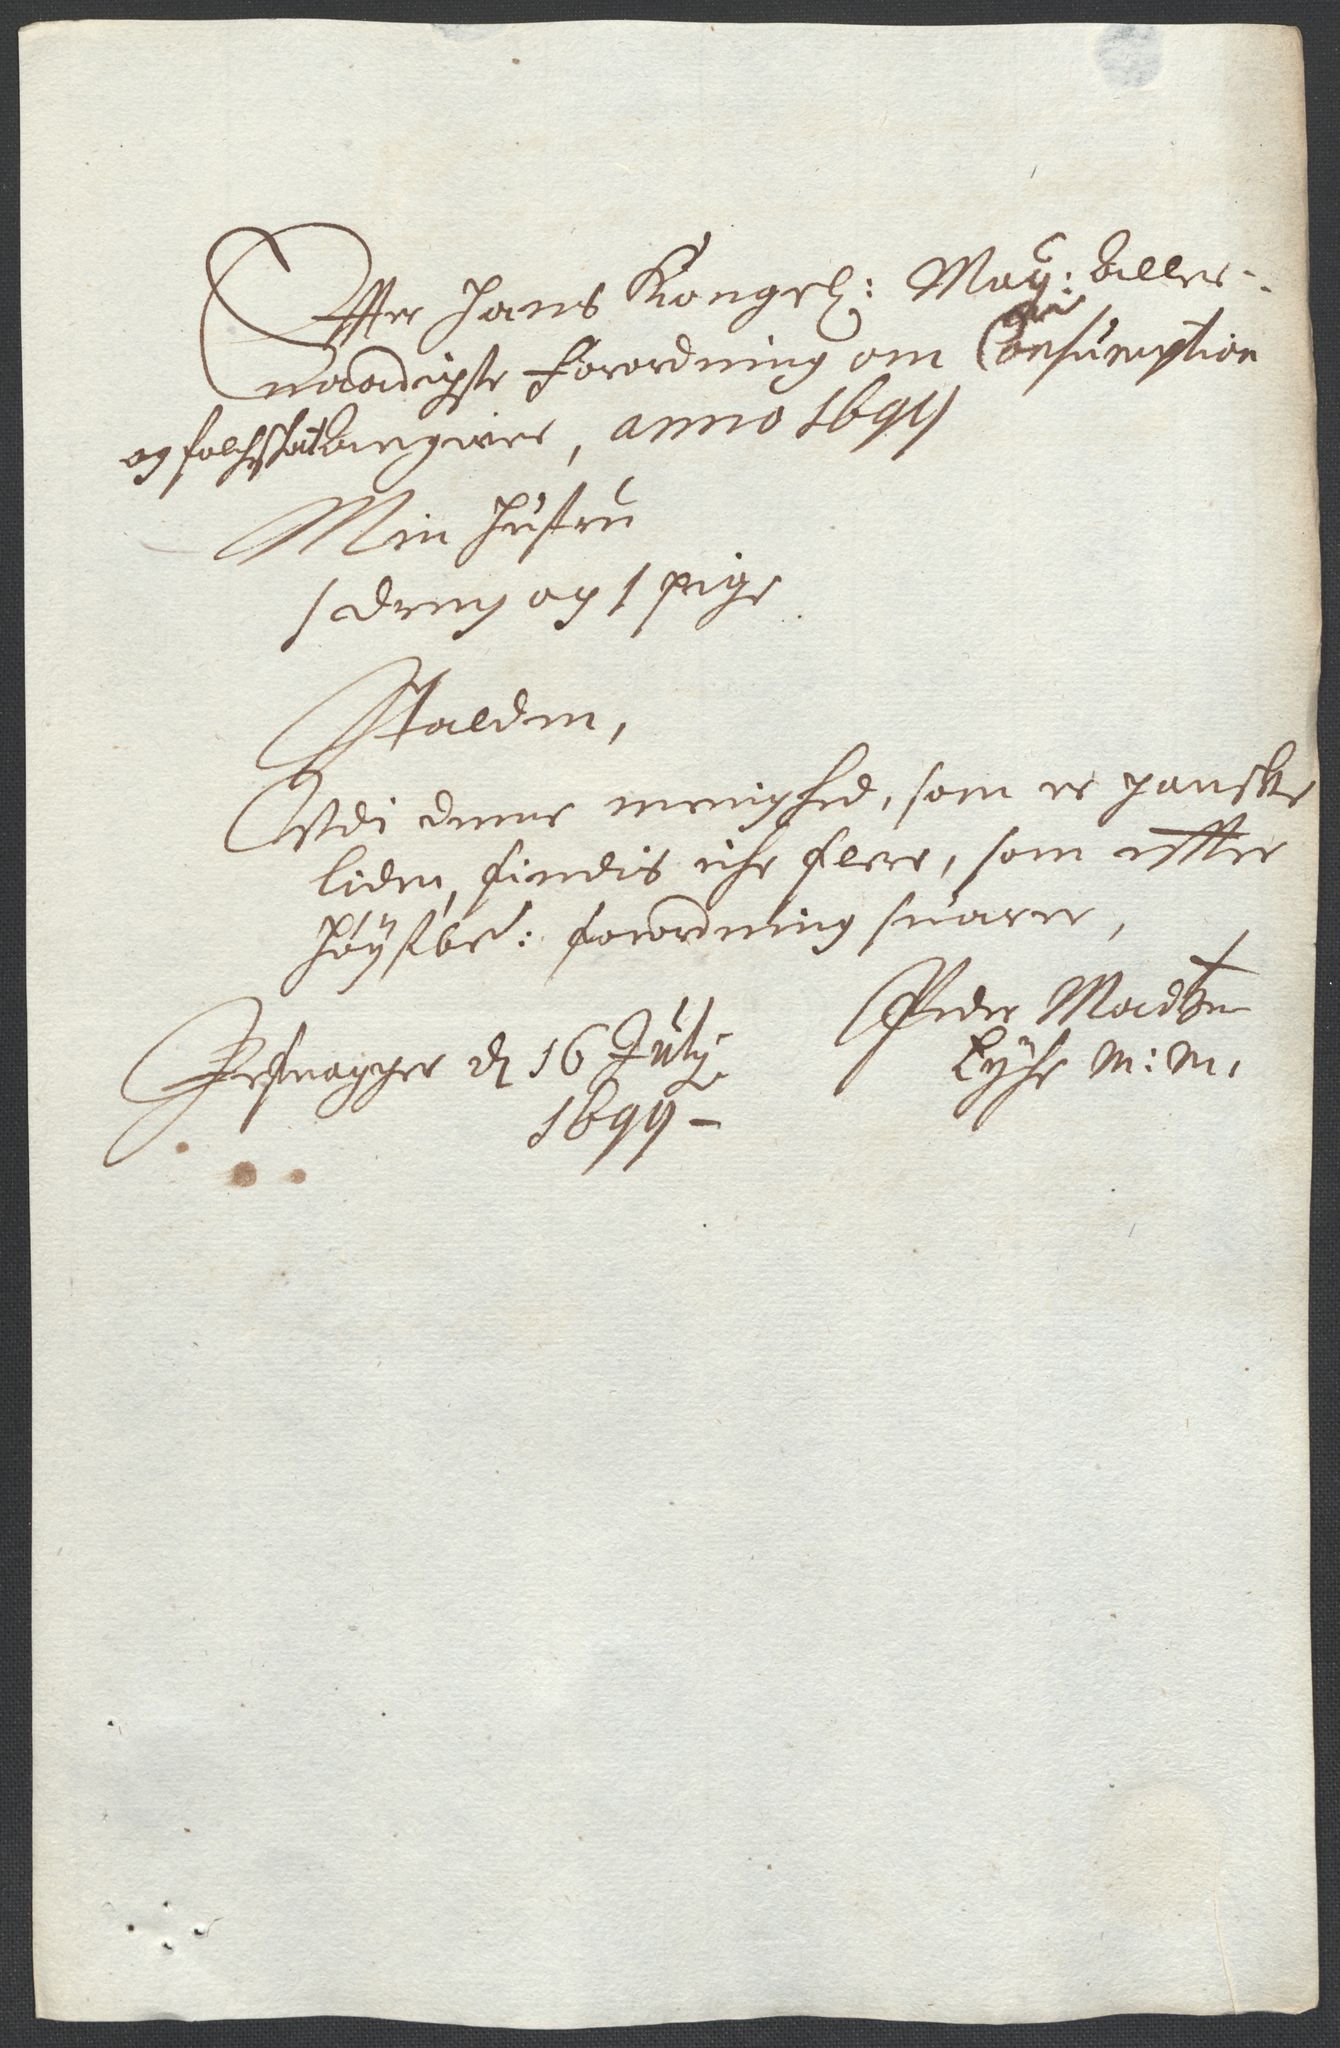 Effter Hans Kongel: May: Aller-
naadigste Forordning om Consumption
og folcheskat angiver, anno 1699
Min Hustru
1 dreng og 1 pige
Stalden,
Udi denne menighed, som er ganske
liden, findis iche flere, som effter
høystbe: forordning svarer,
d 16 July Peder Madsen
1699 – Lyche m: m.